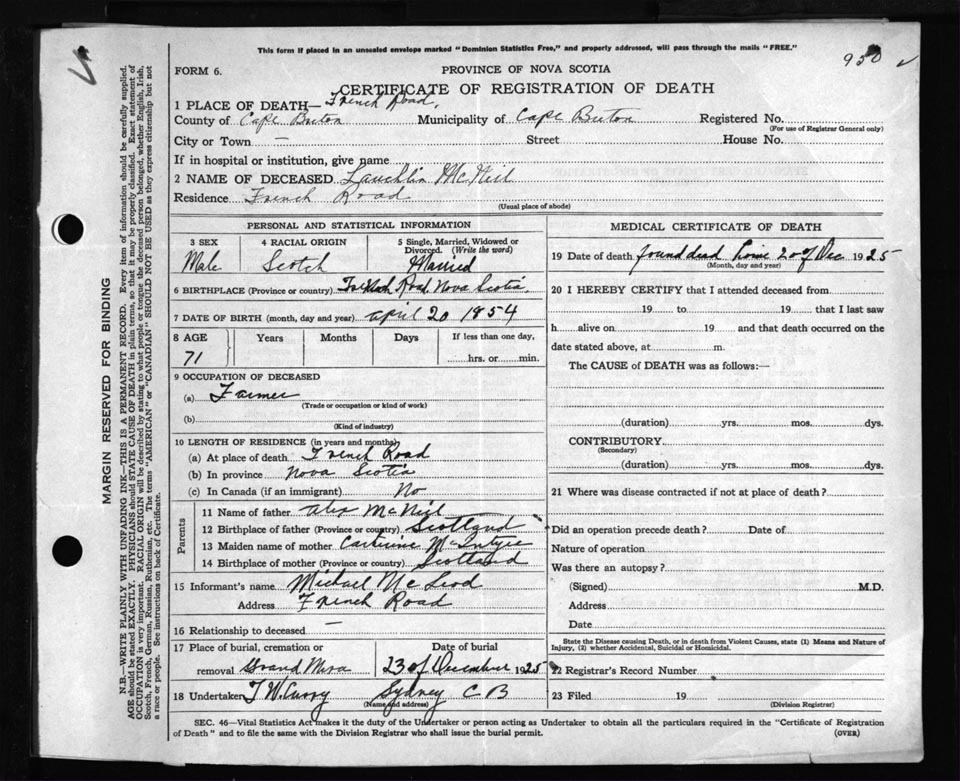 This form if placed in an unsealed envelope marked "Dominion Statistics Free," and properly addressed, will pass through the mails "FREE."
950
FORM 6.
PROVINCE OF NOVA SCOTIA
CERTIFICATE OF REGISTRATION OF DEATH
1 PLACE OF DEATH— French Road,
County of Cape Breton Municipality of Cape Breton Registered No.
(For use of Registrar General only)
City or Town — Street House No.
If in hospital or institution, give name
2 NAME OF DECEASED Lauchlin McNeil
Residence French Road
(Usual place of abode)
PERSONAL AND STATISTICAL INFORMATION
3 SEX 4 RACIAL ORIGIN 5 Single, Married, Widowed or Divorced. (Write the word)
Male Scotch Married
6 BIRTHPLACE (Province or country) French Road, Nova Scotia,
7 DATE OF BIRTH (month, day and year) April 20 1854
8 AGE Years Months Days If less than one day,
71 hrs. or min.
9 OCCUPATION OF DECEASED
(a) Farmer
(Trade or occupation or kind of work)
(b)
(Kind of industry)
10 LENGTH OF RESIDENCE (in years and months)
(a) At place of death French Road
(b) In province Nova Scotia
(c) In Canada (if an immigrant) No
Parents
11 Name of father Alex McNeil
12 Birthplace of father (Province or country) Scotland
13 Maiden name of mother Catherine McIntyre
14 Birthplace of mother (Province or country) Scotland
15 Informant's name Michael McLeod
Address French Road
16 Relationship to deceased —
17 Place of burial, cremation or removal Grand Mira Date of burial 23 of December 1925
18 Undertaker T W Curry Sydney C B
(Name and address)
MEDICAL CERTIFICATE OF DEATH
19 Date of death found dead home 20 of Dec 1925
(Month, day and year)
20 I HEREBY CERTIFY that I attended deceased from
19 to 19 that I last saw
h alive on 19 and that death occurred on the
date stated above, at m.
The CAUSE of DEATH was as follows:—
(duration) yrs. mos. dys.
CONTRIBUTORY
(Secondary)
(duration) yrs. mos. dys.
21 Where was disease contracted if not at place of death?
Did an operation precede death? Date of
Nature of operation
Was there an autopsy?
(Signed) M.D.
Address
Date
State the Disease causing Death, or in death from Violent Causes, state (1) Means and Nature of
Injury, (2) whether Accidental, Suicidal or Homicidal.
22 Registrar's Record Number
23 Filed 19
(Division Registrar)
SEC. 46—Vital Statistics Act makes it the duty of the Undertaker or person acting as Undertaker to obtain all the particulars required in the "Certificate of Registration
of Death" and to file the same with the Division Registrar who shall issue the burial permit. (OVER)
MARGIN RESERVED FOR BINDING
N.B.—WRITE PLAINLY WITH UNFADING INK—THIS IS A PERMANENT RECORD. Every item of information should be carefully supplied.
AGE should be stated EXACTLY. PHYSICIANS should STATE CAUSE OF DEATH in plain terms, so that it may be properly classified. Exact statement of
OCCUPATION is very important. RACIAL ORIGIN will be described by stating to what people or tongue the deceased person belonged, whether English, Irish,
Scotch, French, German, Russian, Ruthenian, etc. The terms "AMERICAN" or "CANADIAN" SHOULD NOT BE USED as they express citizenship but not
a race or people. See instructions on back of Certificate.